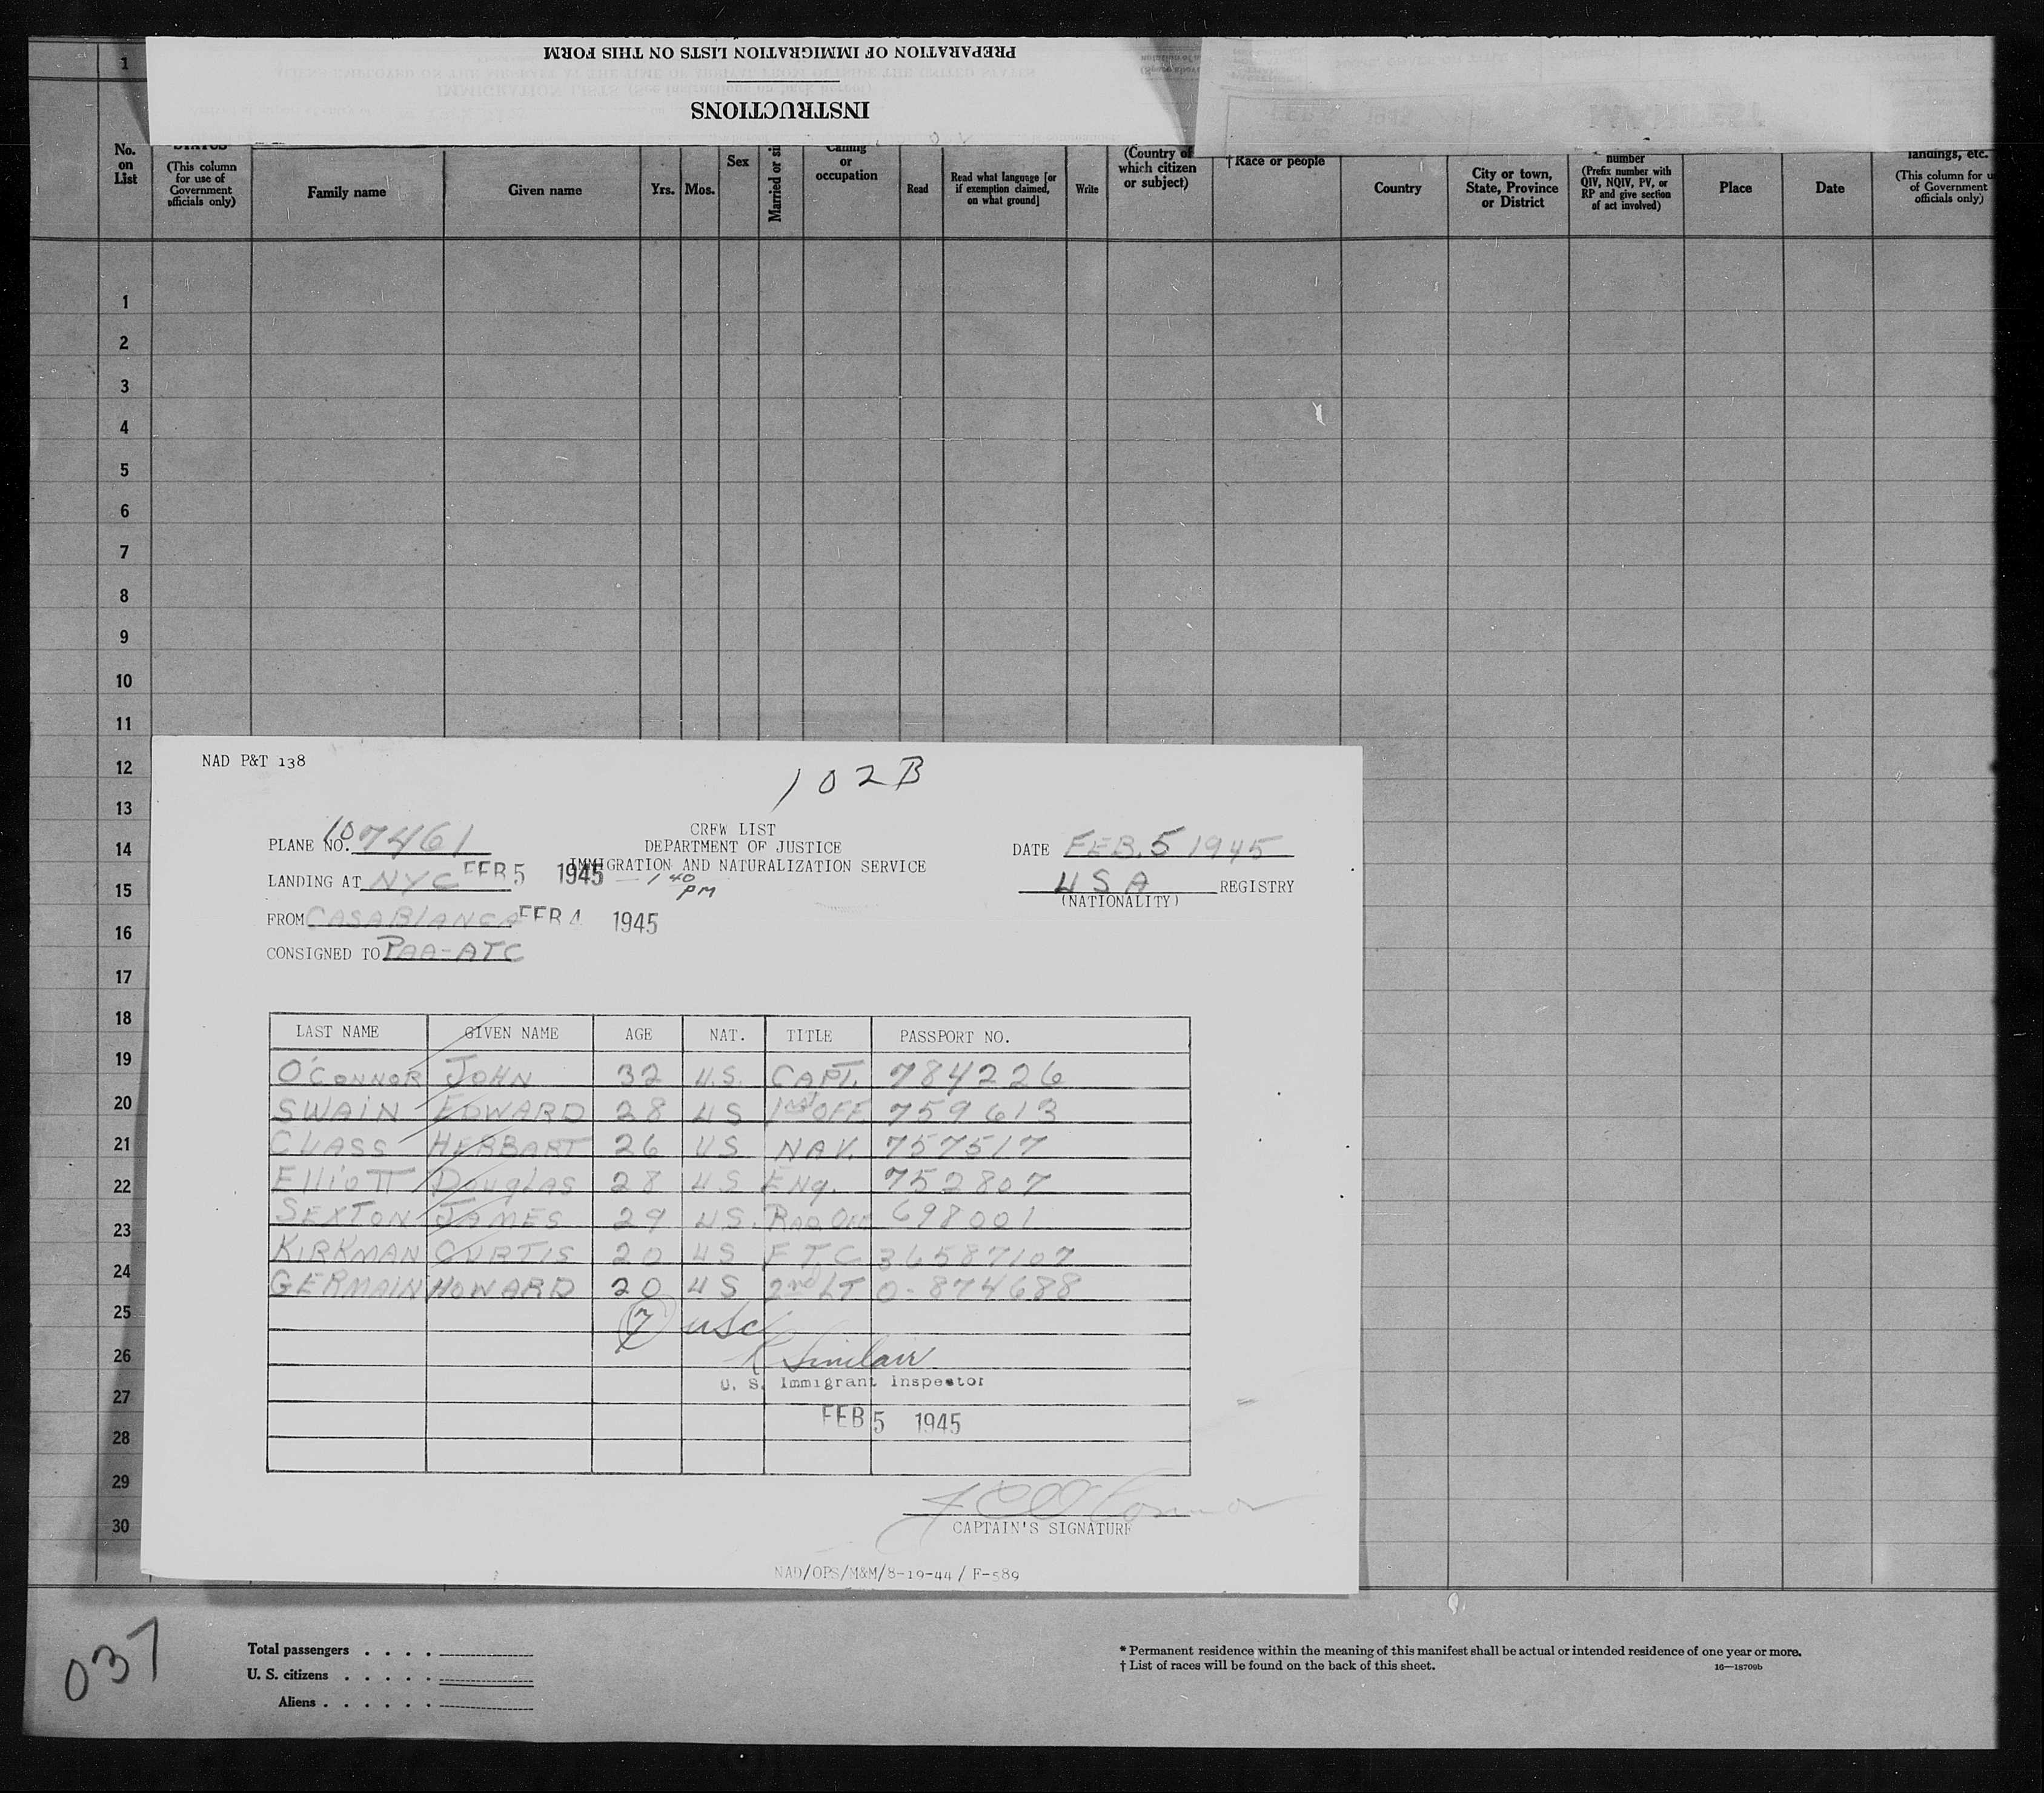 PREPARATION OF IMMIGRATION LISTS ON THIS FORM
INSTRUCTIONS
1
No. on List
STATUS
(This column for use of Government officials only)
Family name
Given name
Yrs.
Mos.
Sex
Married or si
Calling or occupation
Read
Read what language [or if exemption claimed, on what ground]
Write
(Country of which citizen or subject)
† Race or people
Country
City or town, State, Province or District
number (Prefix number with QIV, NQIV, PV, or RP and give section of act involved)
Place
Date
landings, etc.
(This column for u
of Government officials only)
1
2
3
4
5
6
7
8
9
10
11
12
13
14
15
16
17
18
19
20
21
22
23
24
25
26
27
28
29
30
NAD P&T 138
102B
CREW LIST
DEPARTMENT OF JUSTICE
IMMIGRATION AND NATURALIZATION SERVICE
PLANE NO. 107461
DATE FEB. 5 1945
LANDING AT NYC FEB 5 1945 - 1 40 PM
USA REGISTRY
(NATIONALITY)
FROM CASABLANCA FEB 4 1945
CONSIGNED TO PAA-ATC
LAST NAME GIVEN NAME AGE NAT. TITLE PASSPORT NO.
O'CONNOR JOHN 32 U.S. CAPT. 784226
SWAIN EDWARD 28 US 1st OFF. 759613
CLASS HERBART 26 US NAV. 757517
ElliOTT DOUglAS 28 US ENg. 752807
SEXTON JAMES 29 U.S. RAD OFF 698001
KIRKMAN CURTIS 20 US F T C 36587107
GERMAIN HOWARD 20 US 2nd LT O-874688
7 USC
R Sinclair
U. S. Immigrant Inspector
FEB 5 1945
J C O'Connor
CAPTAIN'S SIGNATURE
NAD/OPS/M&M/8-19-44/ F-589
037
Total passengers . . . .
U. S. citizens . . . . .
Aliens . . . . . .
* Permanent residence within the meaning of this manifest shall be actual or intended residence of one year or more.
† List of races will be found on the back of this sheet.
16—18709b